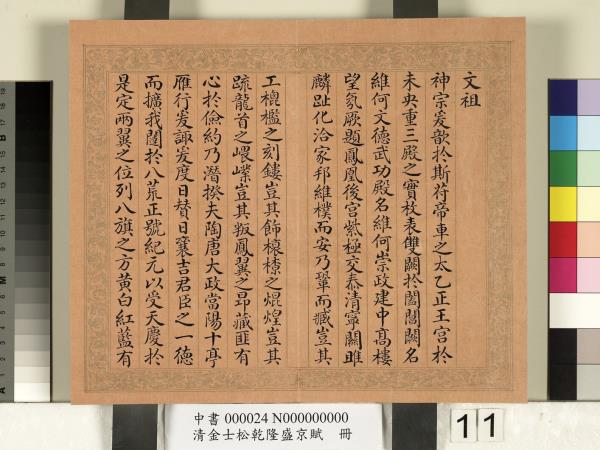 文祖
神宗爰歆於斯苻帝車之太乙正王宮於
未央重三殿之實枚表雙闕於閶闔闕名
維何文德武功殿名維何崇政建中高樓
望氛厥題鳳凰後宮紫極交泰清寧關雎
麟趾化洽家邦維樸而安乃鞏而臧豈其
工榥檻之刻鏤豈其飾榱橑之焜煌豈其
疏龍首之嵔豈其叛鳳翼之昂藏匪有
心於儉約乃潛揆夫陶唐大政當陽十亭
雁行爰諏爰度日賛日襄吉君臣之一德
而擴我闥於八荒正號紀元以受天慶於
是定兩翼之位列八旗之方黃白紅藍有
中書 000024 N000000000
清金士松乾隆盛京賦 冊
11